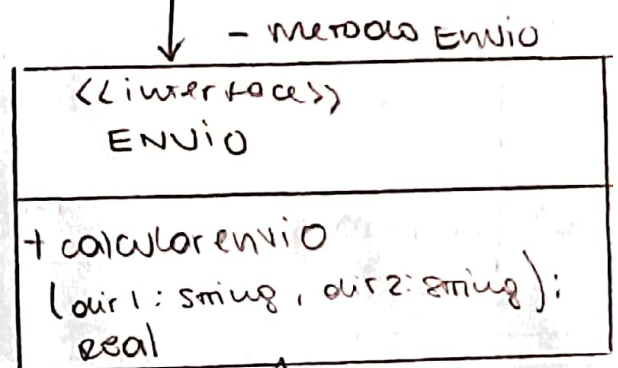 - metodo Envio
<<interface>>
ENViO
+ calcularenviO
(dir1: string, dir2: string):
real